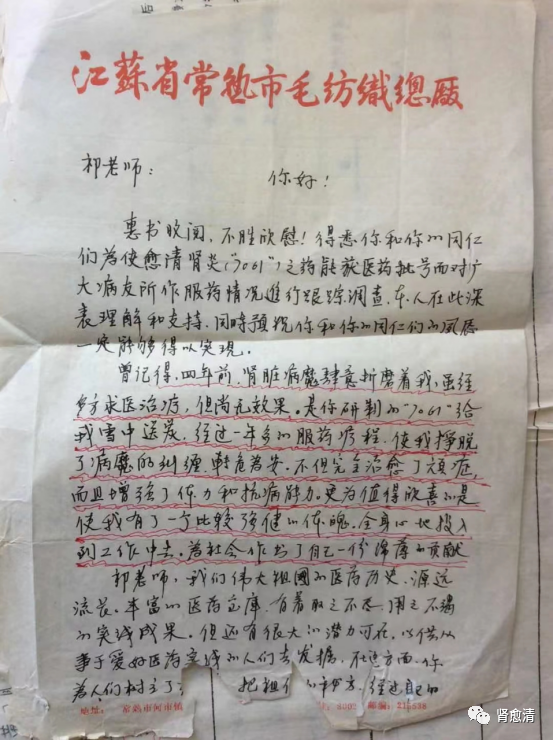 江蘇省常熟市毛纺織總廠
祁老师：
你好！
惠书收阅，不胜欣慰！得悉你和你的同仁
们为使愈清肾炎("7061")之药能获医药批号而对广
大病友所作服药情况進行跟踪调查，本人在此深
表理解和支持，同時預祝你和你的同仁们的夙愿
一定能够得以实现。
曾记得，四年前，肾脏病魔肆意折磨着我，虽经
多方求医治疗，但尚无效果。是你研制的"7061"给
我雪中送炭，经过一年多的服药疗程，使我掙脱
了病魔的纠缠，転危为安。不但完全治愈了顽症，
而且增强了体力和抗病能力。更为值得欣喜的是
使我有了一个比较强健的体魄，全身心地投入
到工作中去，为社会作出了自己一份薄的贡献
祁老师，我们伟大祖國的医药历史，源远
流长。丰富的医药宝庫，有着取之不尽，用之不竭
的实践成果。但还有很大的潜力可挖，以供从
事于爱好医药实践的人们去发掘，在这方面，你
为人们树立了
把祖
秘方，经过自己的
地址：常熟市
邮编：
肾愈清